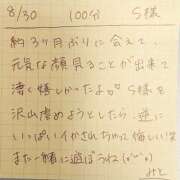 8/30 100分 S様
約3ヶ月ぶりに会えて、
元気な顔見ることが出来て
凄く嬉しかったよ♡ S様を
沢山虐めようとしたら、逆に
いっぱいイかされちゃって悔しい笑
また一緒に遊ぼうね(^ω^)
みと